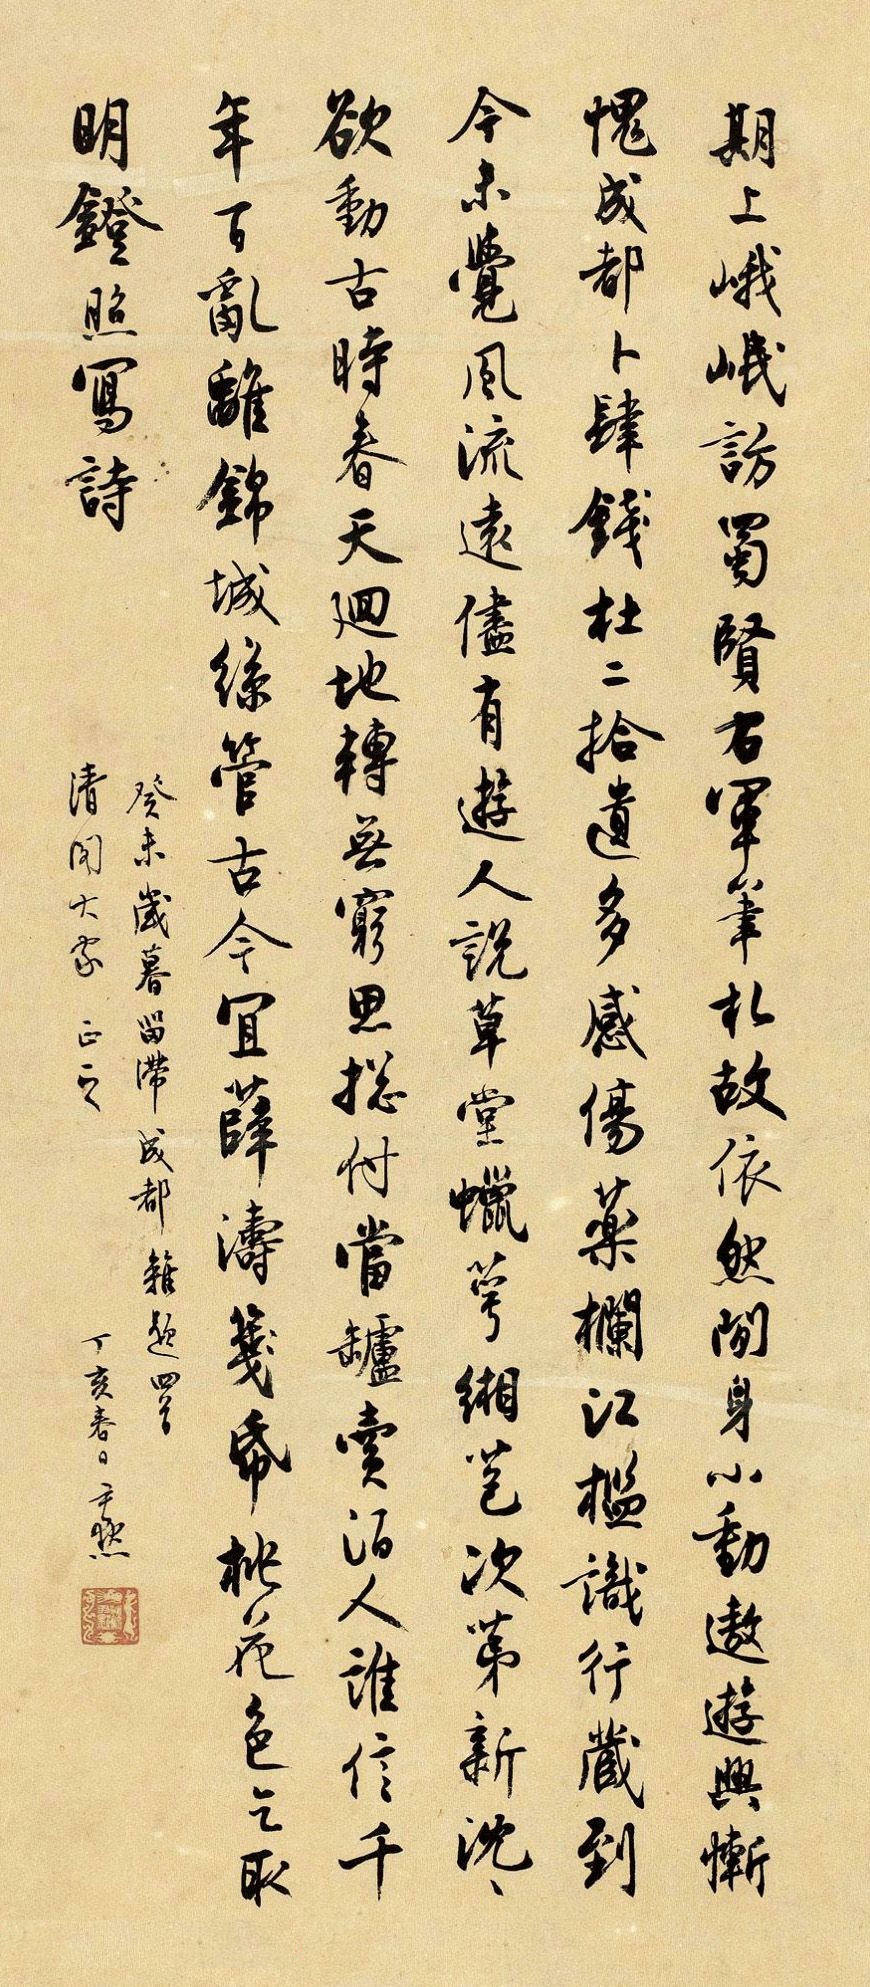 期上峨岷訪蜀賢右軍筆札故依然閒身小動遨遊興慚
愧成都卜肆錢杜二拾遺多感傷藥欄江檻識行藏到
今未覺風流遠儘有遊人說草堂蠟萼緗苞次第新沈〻
欲動古時春天迴地轉無窮思摠付當罏賣酒人誰信千
年百亂離錦城絲管古今宜薛濤箋紙桃花色乞取
明鐙照寫詩
癸未歲暮留滯成都雜題四首
清閣大家 正之
丁亥春日 尹默